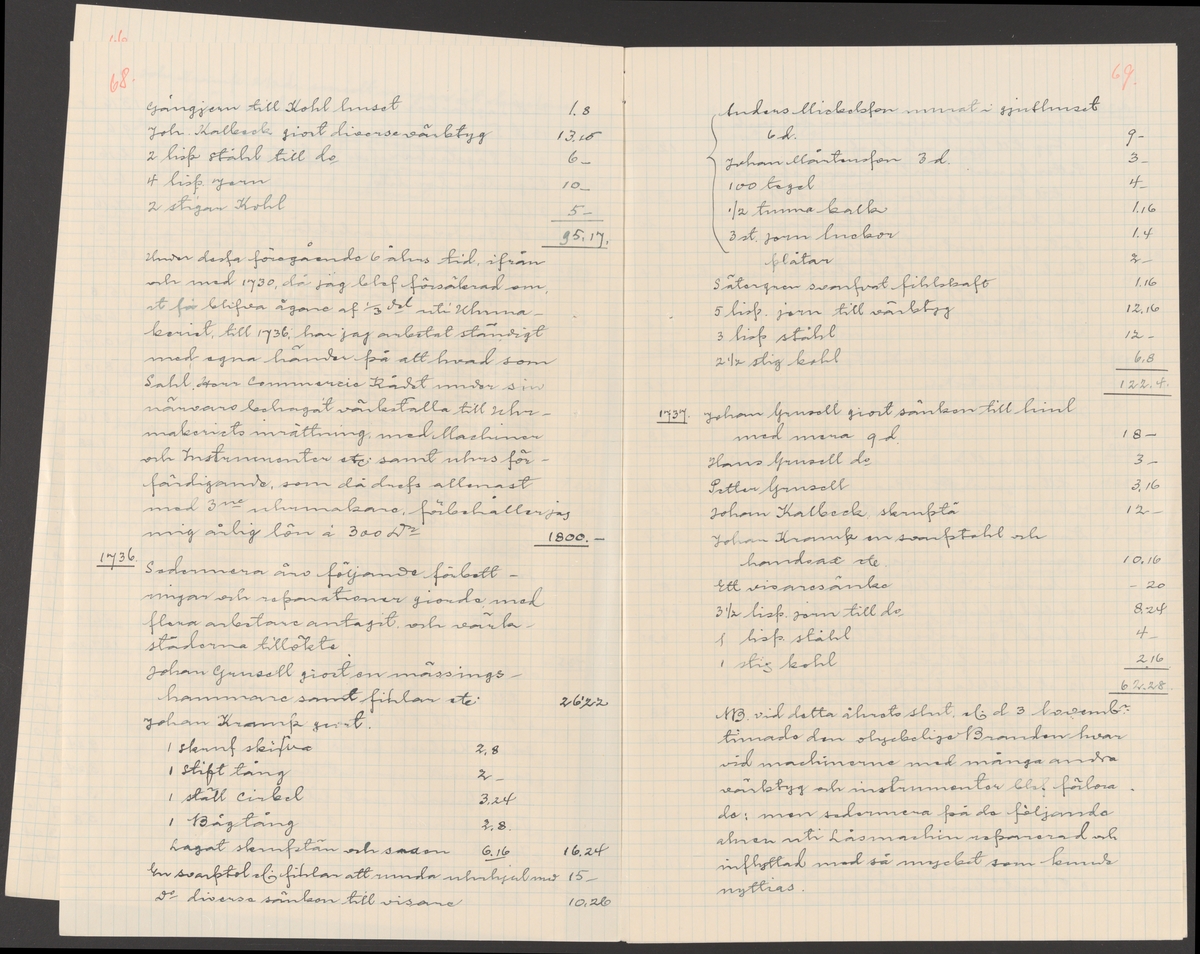 16
68.
Gångjern till Kohl huset 1.8
Joh. Kalbeck giort diverse värktyg 13.16
2 lisp ståhl till do 6–
4 lisp. jern 10–
2 stigar Kohl 5–
95.17.
Under dessa föregående 6 åhrs tid, ifrån
och med 1730, då jag blef försäkrad om,
at få blifva ägare af 1/3 del uti Uhrma-
keriet, till 1736, har jag arbetat ständigt
med egna händer på att hvad som
Sahl. Herr Commercie Rådet under sin
närvaro behagat värkställa till Uhr-
makeriets inrättning, med Machiner
och Instrumenter etc: samt uhrs för-
färdigande, som då drefs allenast
med 3ne uhrmakare, förbehåller jag
mig årlig lön à 300 Dr 1800.–
1736. Sedermera äro följande förbätt-
ringar och reparationer giorde, med
flera arbetare antagit, och värk-
städerna tillökte.
Johan Grusell giort en mässings-
hammare samt fihlar etc: 26.22
Johan Kramp giort.
1 skruf skifva 2.8
1 stift tång 2–
1 ställ cirkel 3.24
1 Bågtång 2.8.
Lagat skrufstän och saxen 6.16 16.24
En svarfstol o fihlar att runda uhrhjul med 15–
Dr diverse sänken till visare 10.26
69.
Anders Mickelsson murat i gjuthuset
6 d. 9–
Johan Mårtensson 3 d. 3–
100 tegel 4–
1/2 tunna kalk 1.16
3 st. jern luckor 1.4
plåtar 2–
Sätergren svarfvat fihlskaft 1.16
5 lisp. jern till värktyg 12.16
3 lisp ståhl 12–
2 1/2 stig kohl 6.8
122.4.
1737. Johan Grusell giort sänken till hiul
med mera 9 d. 18–
Hans Grusell do 3–
Petter Grusell 3.16
Johan Kalbeck, skrufstä 12–
Johan Kramp en svarfstahl och
handsax etc 10.16
Ett visaresänke –20
3 1/2 lisp. jern till do 8.24
1 lisp ståhl 4–
1 stig kohl 2.16
62.28
NB. vid detta åhrets slut, d. 3 Novembr:
timade den olyckelige Branden hvar
vid machinerne med många andra
värktyg och instrumenter blef förlora
de; men sedermera på de följande
ahren uti Låsmachin reparerad och
inflyttad med så mycket som kunde
nyttias.